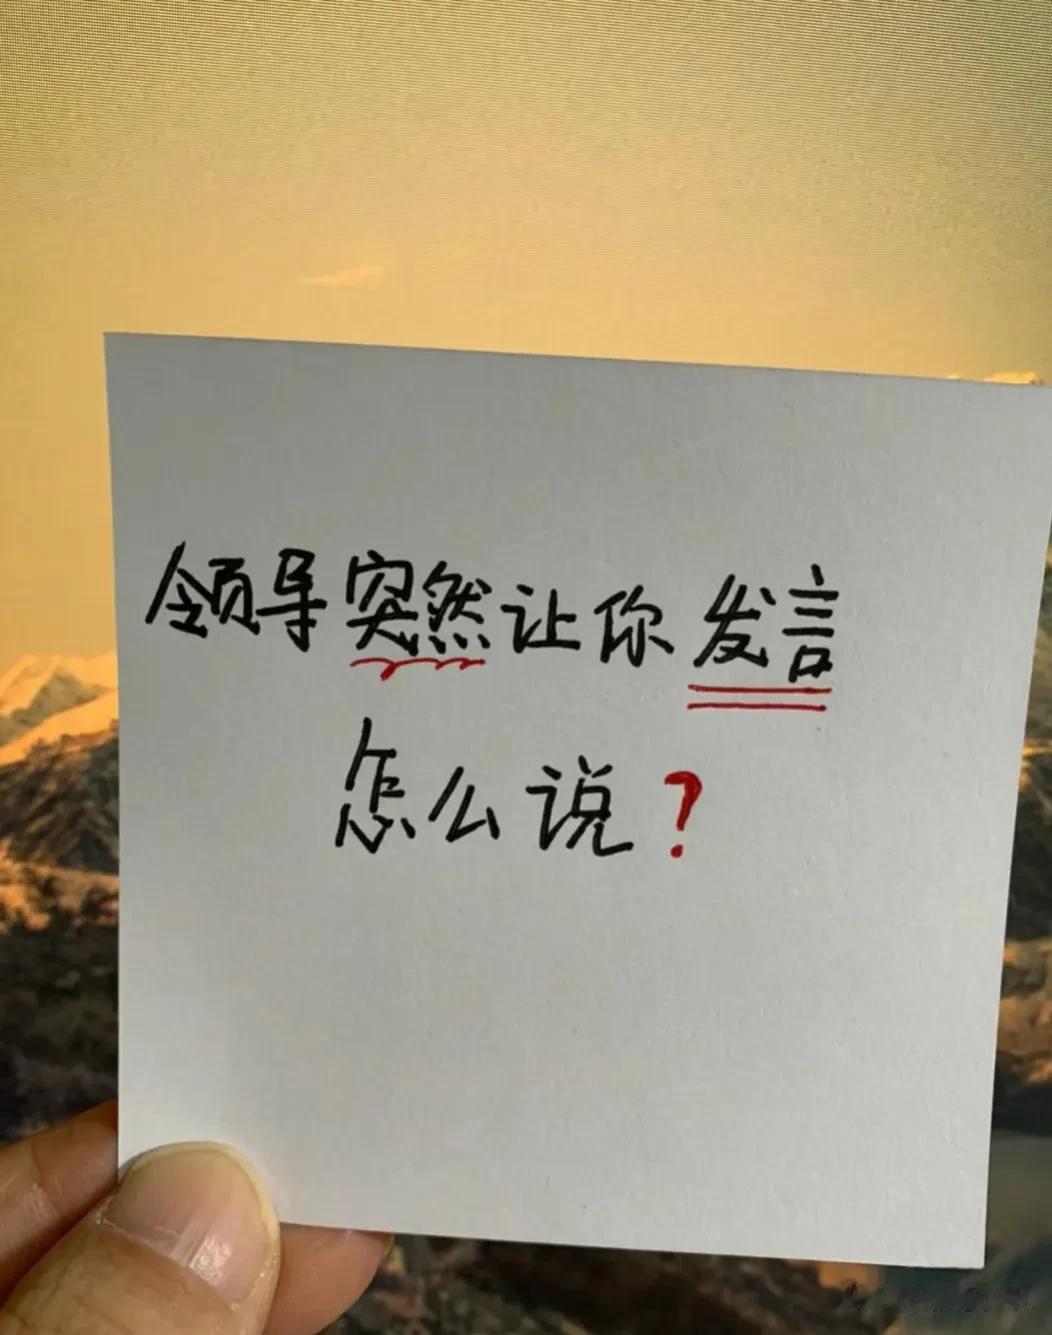 领导突然让你发言
怎么说?